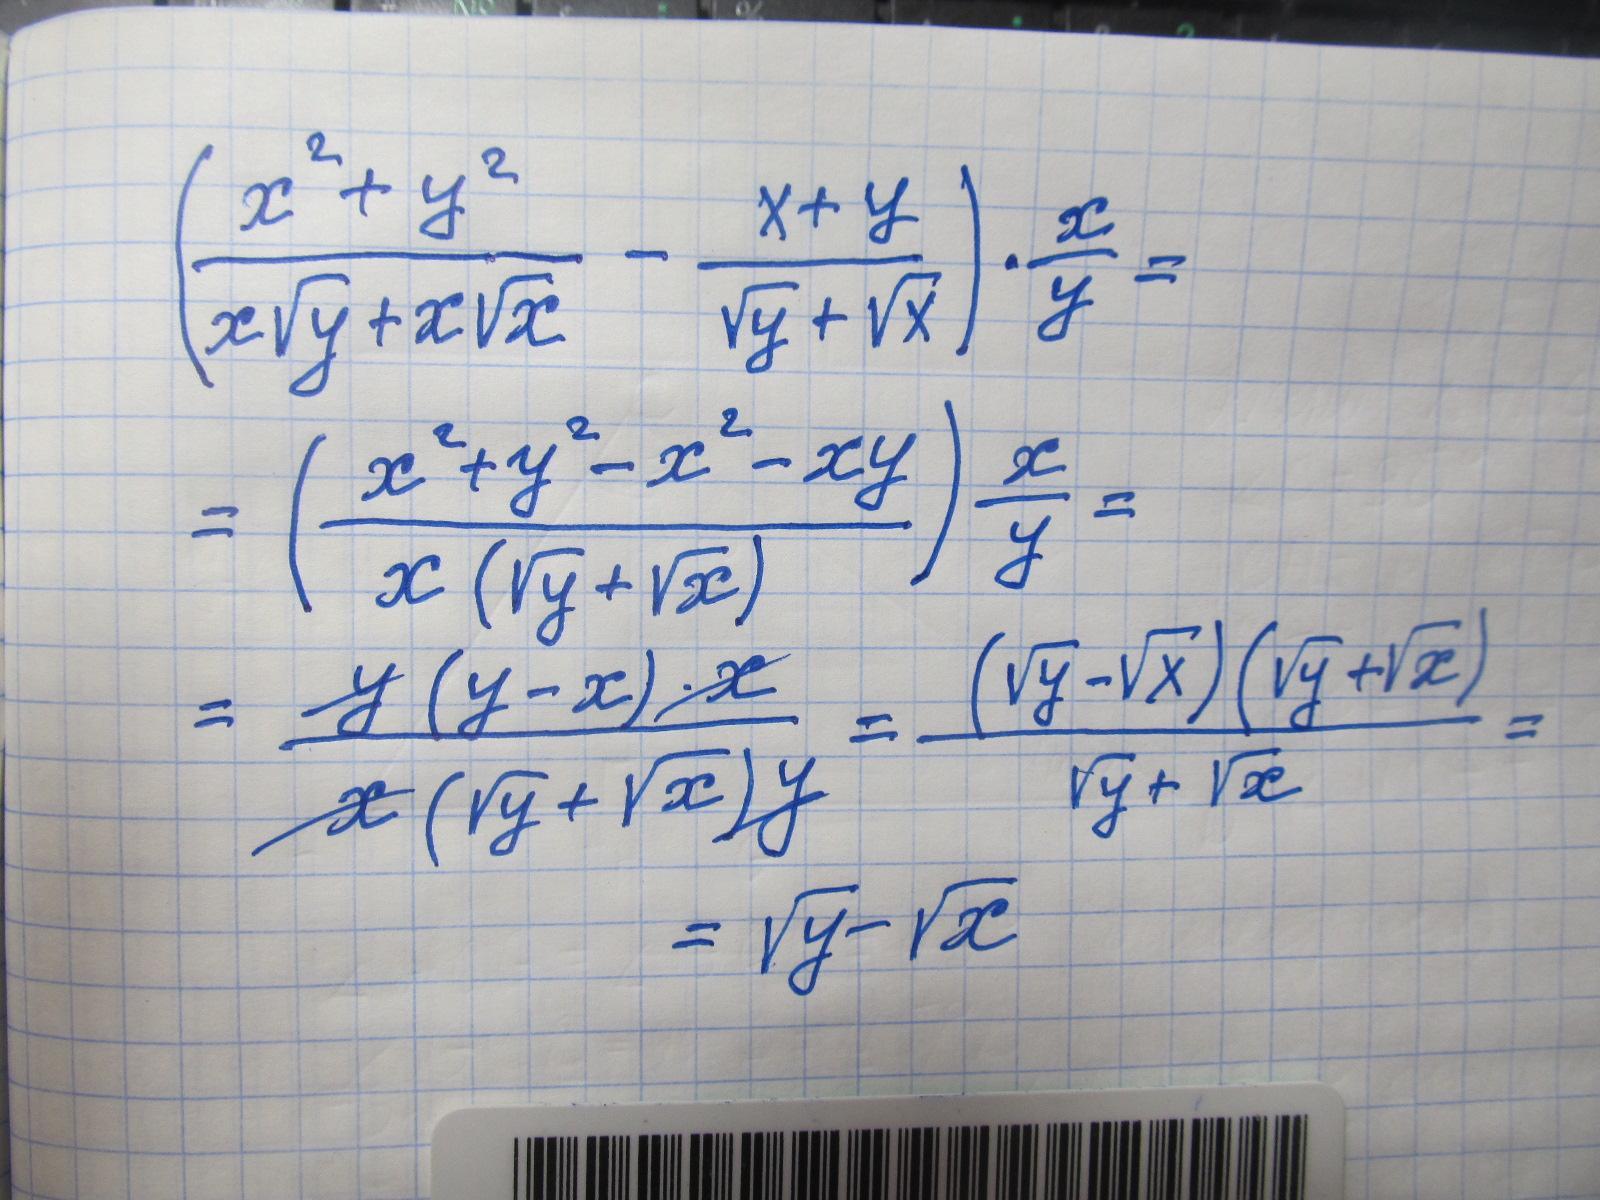 (x²+y²/(x√y+x√x) - (x+y)/(√y+√x))·x/y=
=((x²+y²-x²-xy)/(x(√y+√x)))x/y=
=(y(y-x)·x)/(x(√y+√x)y)=((√y-√x)(√y+√x))/(√y+√x)=
=√y-√x